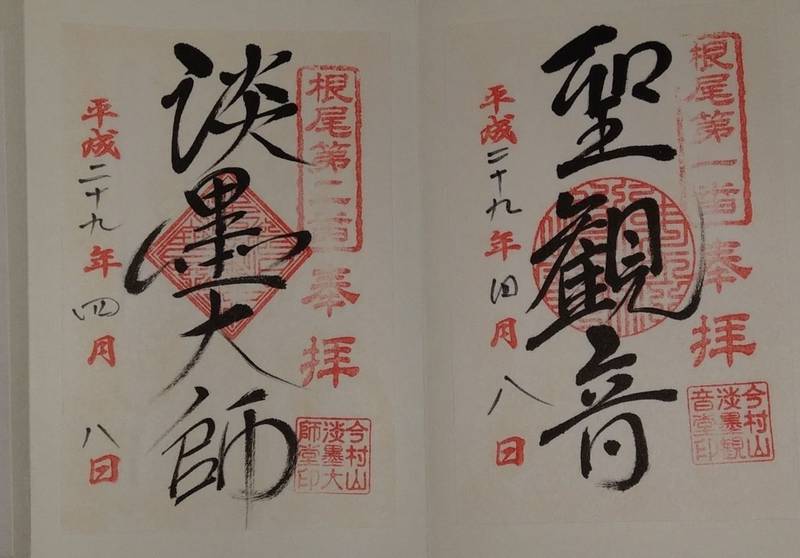 根尾第一番
奉拝
聖観音
今村山
淡墨観
音堂印
平成二十九年四月八日
根尾第二番
奉拝
淡墨大師
今村山
淡墨大
師堂印
平成二十九年四月八日